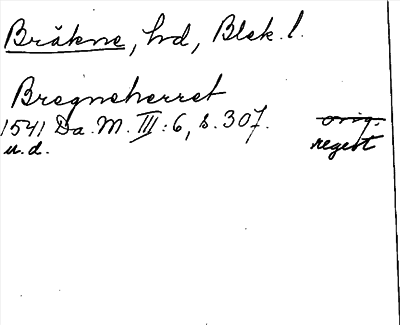 Bräkne, hd, Blek. l.
Bregneherret
1541 Da. M. III: 6, s. 307. orig.
u. d. regest